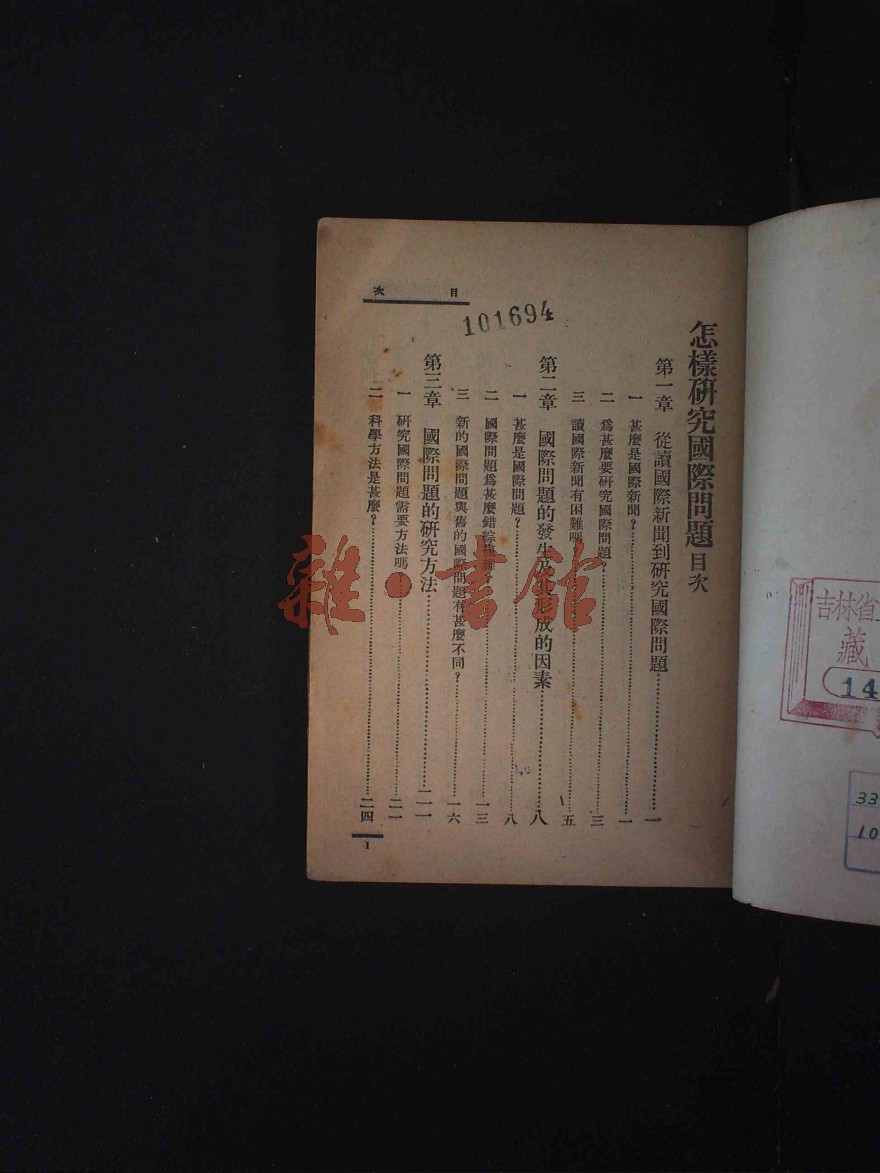 怎樣研究國際問題 目次
第一章 從讀國際新聞到研究國際問題……一
一 甚麼是國際新聞？……一
二 爲甚麼要研究國際問題？……三
三 讀國際新聞有困難嗎……五
第二章 國際問題的發生及其形成的因素……八
一 甚麼是國際問題？……八
二 國際問題爲甚麼錯綜……一三
三 新的國際問題與舊的國際問題有甚麼不同？……一六
第三章 國際問題的研究方法……二一
一 研究國際問題需要方法嗎……二一
二 科學方法是甚麼？……二四
目次
101694
1
雜·書館
吉林省
藏
14
33
10